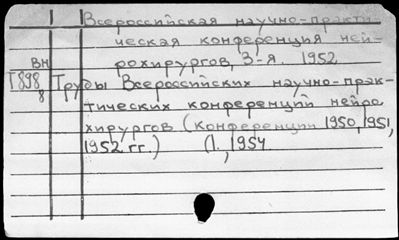 Всероссийская научно-практи-
ческая конференция ней-
рохирургов, 3-я. 1952
ВН
Т898 Труды Всероссийских научно-прак-
8
тических конференций нейро
хирургов (конференции 1950, 1951,
1952 гг.) Л., 1954